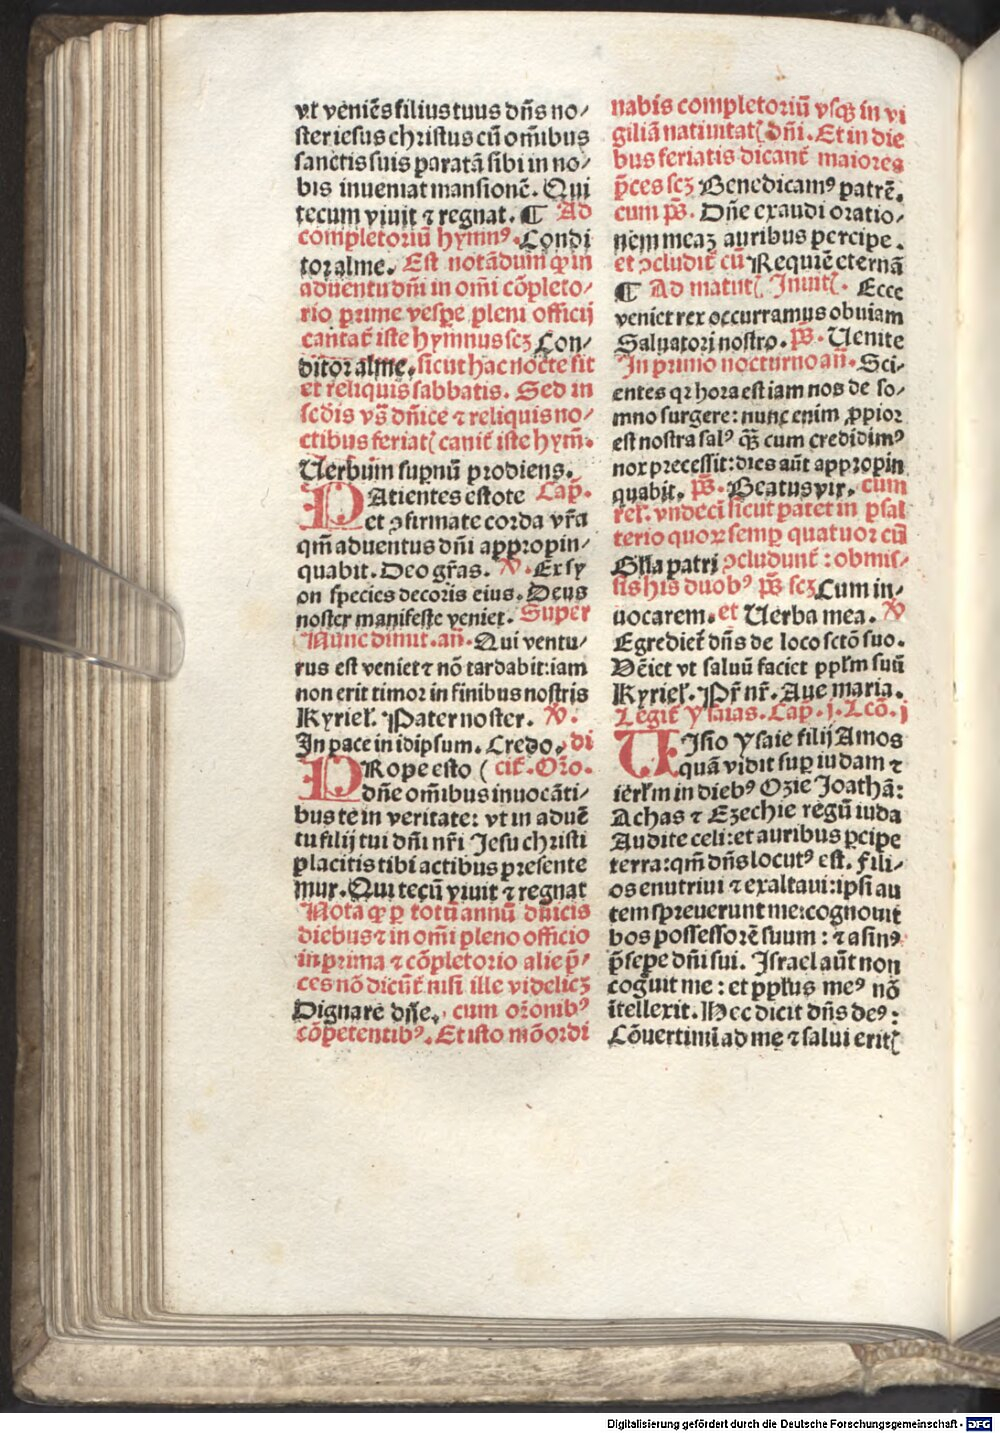 vt veniēs filius tuus dn̄s no⸗
ster iesus christus cū om̄ibus
sanctis suis paratā sibi in no⸗
bis inueniat mansionē. Qui
tecum viuit ⁊ regnat. ¶ Ad
completoriū hymnꝰ. Condi
tor alme. Est notādum ꝙ in
aduentu dn̄i in om̄i cōpleto⸗
rio prime vespe pleni officij
cantat̄ iste hymnus scꝫ Con⸗
ditor alme. sicut hac nocte fit
et reliquis sabbatis. Sed in
scd̄is vs̄ dn̄ice ⁊ reliquis no⸗
ctibus feriat̄ canit̄ iste hym̄.
Verbum supnū prodiens.
PAtientes estote Cap̄.
et ꝯfirmate corda vr̄a
qm̄ aduentus dn̄i appropin⸗
quabit. Deo gr̄as. ℣. Ex sy
on species decoris eius. Deus
noster manifeste veniet. Super
Nunc dimit. an̄. Qui ventu⸗
rus est veniet ⁊ nō tardabit: iam
non erit timor in finibus nostris
Kyriel̄. Pater noster. ℣.
In pace in idipsum. Credo. di
PRope esto ( cit̄. Or̄o.
dn̄e om̄ibus inuocāti⸗
bus te in veritate: vt in aduē
tu filij tui dn̄i nr̄i Jesu christi
placitis tibi actibus presente
mur. Qui tecū viuit ⁊ regnat
Nota ꝙ ꝑ totū annū dn̄icis
diebus ⁊ in om̄i pleno officio
in prima ⁊ cōpletorio alie p̄⸗
ces nō dicūt̄ nisi ille videlicꝫ
Dignare dn̄e. cum or̄onibꝰ
cōpetentibꝰ. Et isto mō ordi
nabis completoriū vsqꝫ in vi
giliā natiuitat̄ dn̄i. Et in die
bus feriatis dicant̄ maiores
p̄ces scꝫ Benedicamꝰ patrē.
cum ps̄. Dn̄e exaudi oratio⸗
nem meaꝫ auribus percipe.
et ꝯcludit̄ cū Requiē eternā
¶ Ad matut̄ Inuit̄. Ecce
veniet rex occurramus obuiam
Saluatori nostro. ps̄. Uenite
In primo nocturno an̄. Sci⸗
entes qꝛ hora est iam nos de so⸗
mno surgere: nunc enim ꝓpior
est nostra salꝰ qꝫ cum credidimꝰ
nox precessit: dies aūt appropin
quabit. ps̄. Beatus vir. cum
rel̄. vndeci sicut patet in psal
terio quoꝝ semp quatuor cū
Gl̄ia patri ꝯcludunt̄: obmis⸗
sis his duobꝰ ps̄ scꝫ Cum in⸗
uocarem. et Uerba mea. ℣
Egrediet̄ dn̄s de loco sctō suo.
Uēiet vt saluū faciet ppl̄m suū
Kyriel̄. Pr̄ nr̄. Aue maria.
Legit̄ ysaias. Cap̄. j. Lcō. j
UIsio ysaie filij Amos
quā vidit suꝑ iudam ⁊
ierl̄m in diebꝰ Ozie Joathā:
Achas ⁊ Ezechie regū iuda
Audite celi: et auribus ꝑcipe
terra: qm̄ dn̄s locutꝰ est. Fili⸗
os enutriui ⁊ exaltaui: ipsi au
tem spreuerunt me: cognouit
bos possessorē suum: ⁊ asinꝰ
p̄sepe dn̄i sui. Israel aūt non
cognuit me: et ppl̄us meꝰ nō
ītellexit. Hec dicit dn̄s deꝰ:
Cōuertimī ad me ⁊ salui erit̄
Digitalisierung gefördert durch die Deutsche Forschungsgemeinschaft - DFG